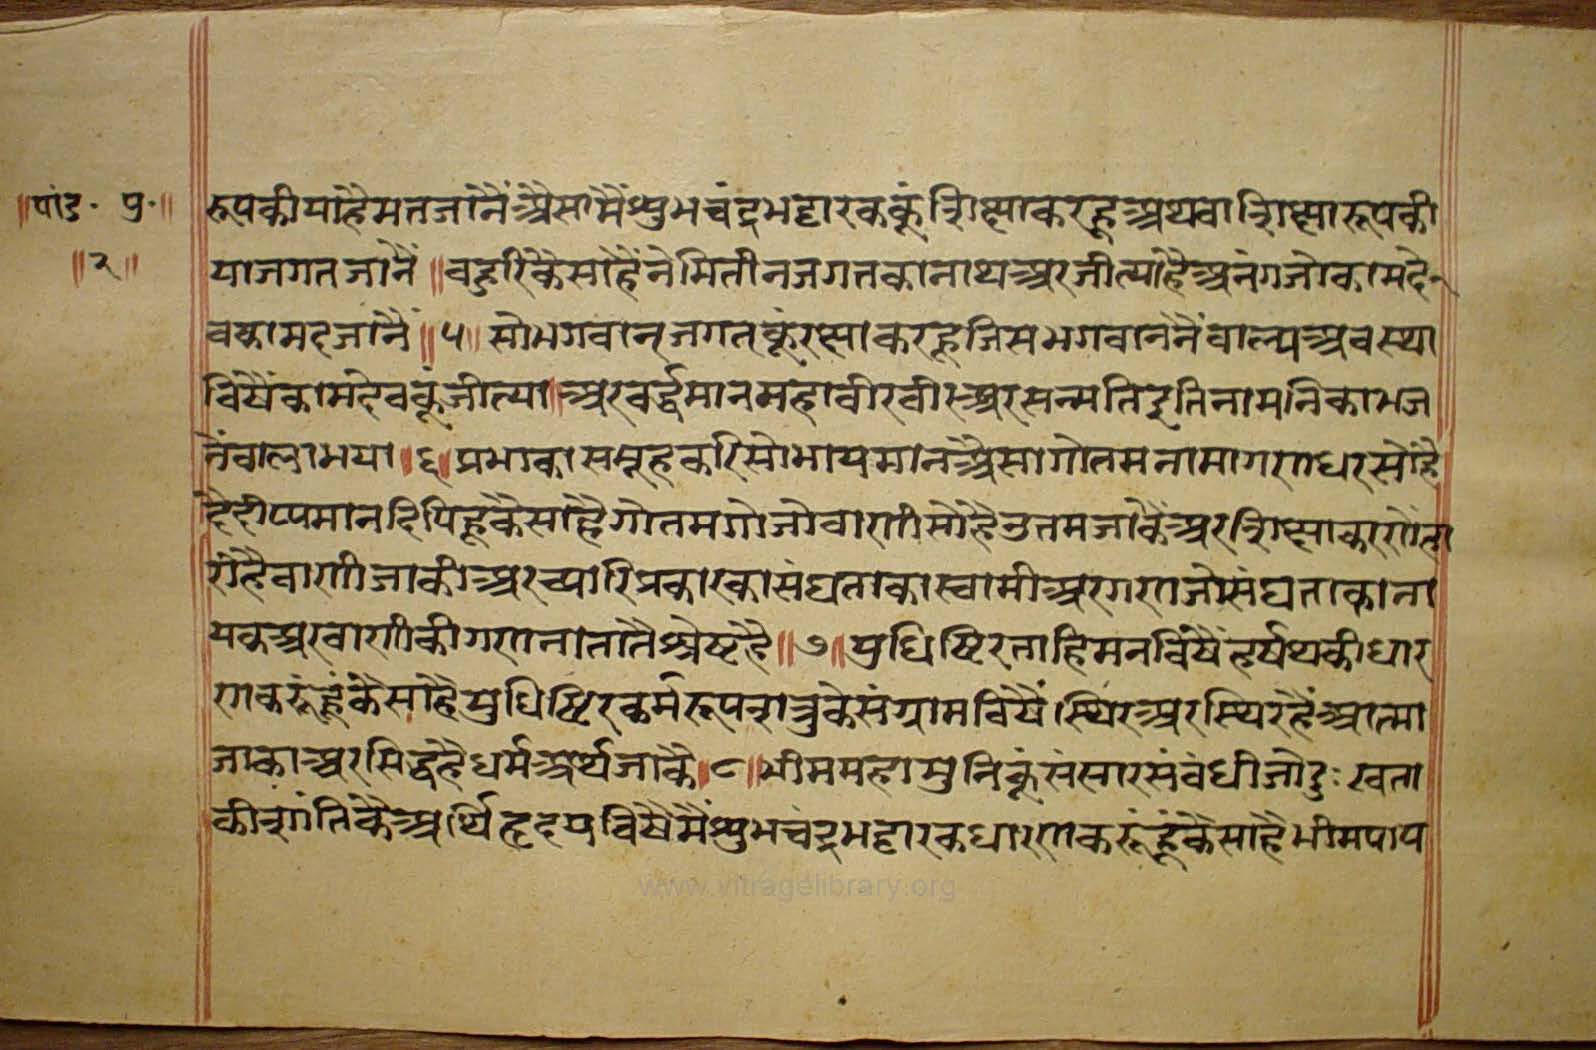 ॥पांडु॰ पु॰॥
॥२॥
रूपकीयाहैमतजानैंअैसामैंशुभचंद्रभट्टारककूंशिष्याकरहूअथवाशिष्यारूपकी
याजगतजानैं॥बहुरिकैसाहैंनेमितीनजगतकानाथअरजीत्याहैअनंगजोकामदे
वकामदजानैं॥५॥सोभगवानजगतकूंरक्षाकरहूजिसभगवाननैंवाल्यअवस्था
विषैंकामदेवकूंजीत्या॥अरवर्द्धमानमहावीरवीरअरसन्मतिइतिनामनिकाभज
नंवालाभया॥६॥प्रभाकासमूहकरिसोभायमानअैसागोतमनामागणधरसोहै
दैदीप्यमानदिपिहूकैसाहैगोतमगोजोवाणीसोहैउत्तमजाकैंअरशिक्षाकारणोंवा
रीहैवाणीजाकीअरच्यारिप्रकारकासंघताकास्वामीअरगणजोसंघताकाना
यकअरवाणीकीगणनातातैश्रेष्टहै॥७॥युधिष्टिरताहिमनविषैंहर्षथकीधार
णकरूंहूंकैसाहैयुधिष्टिरकर्मरूपशत्रुकेसंग्रामविषैं।स्थिरअरस्थिरहैंआत्मा
जाकाअरसिद्धहैधर्मअर्थजाकै॥८॥भीममहामुनिकूंसंसारसंवंधीजोदुःखता
कीशांतिकैअर्थिहृदयविषैमैंशुभचंद्रभट्टारकधारणकरूंहूंकैसाहैभीमपाप
www.vitragelibrary.org